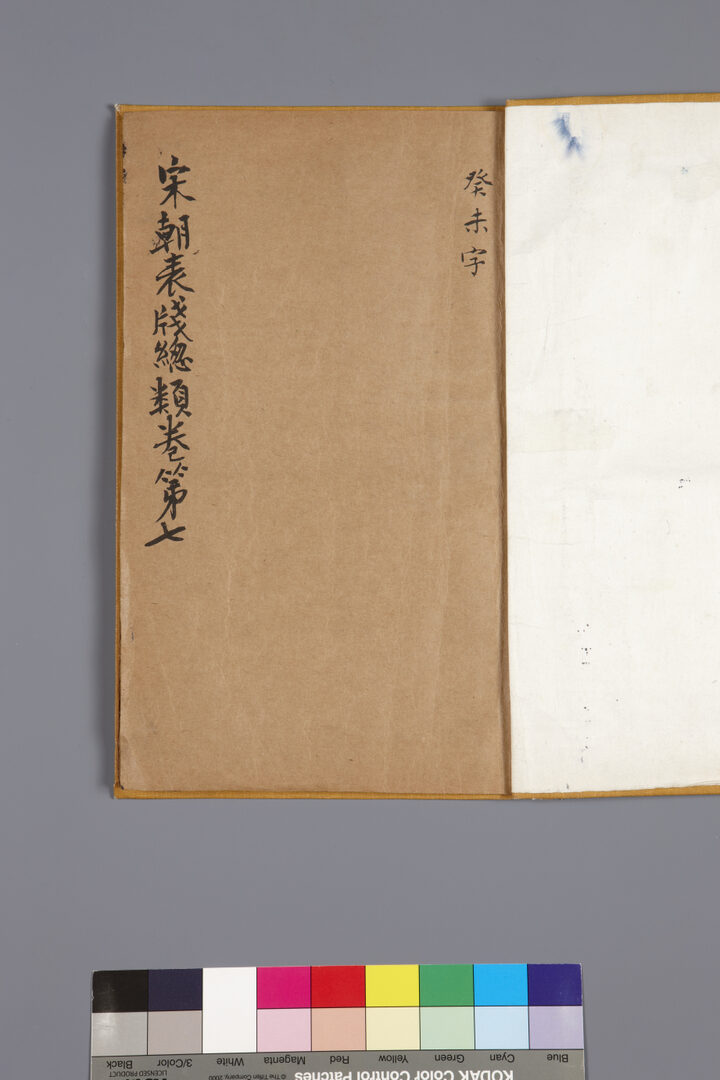 癸未字
宋朝表牋總類卷第七
Blue Cyan Green Yellow Red Magenta White 3/Color Black
KODAK Color Control Patches © The Tiffen Company, 2000 LICENSED PRODUCT